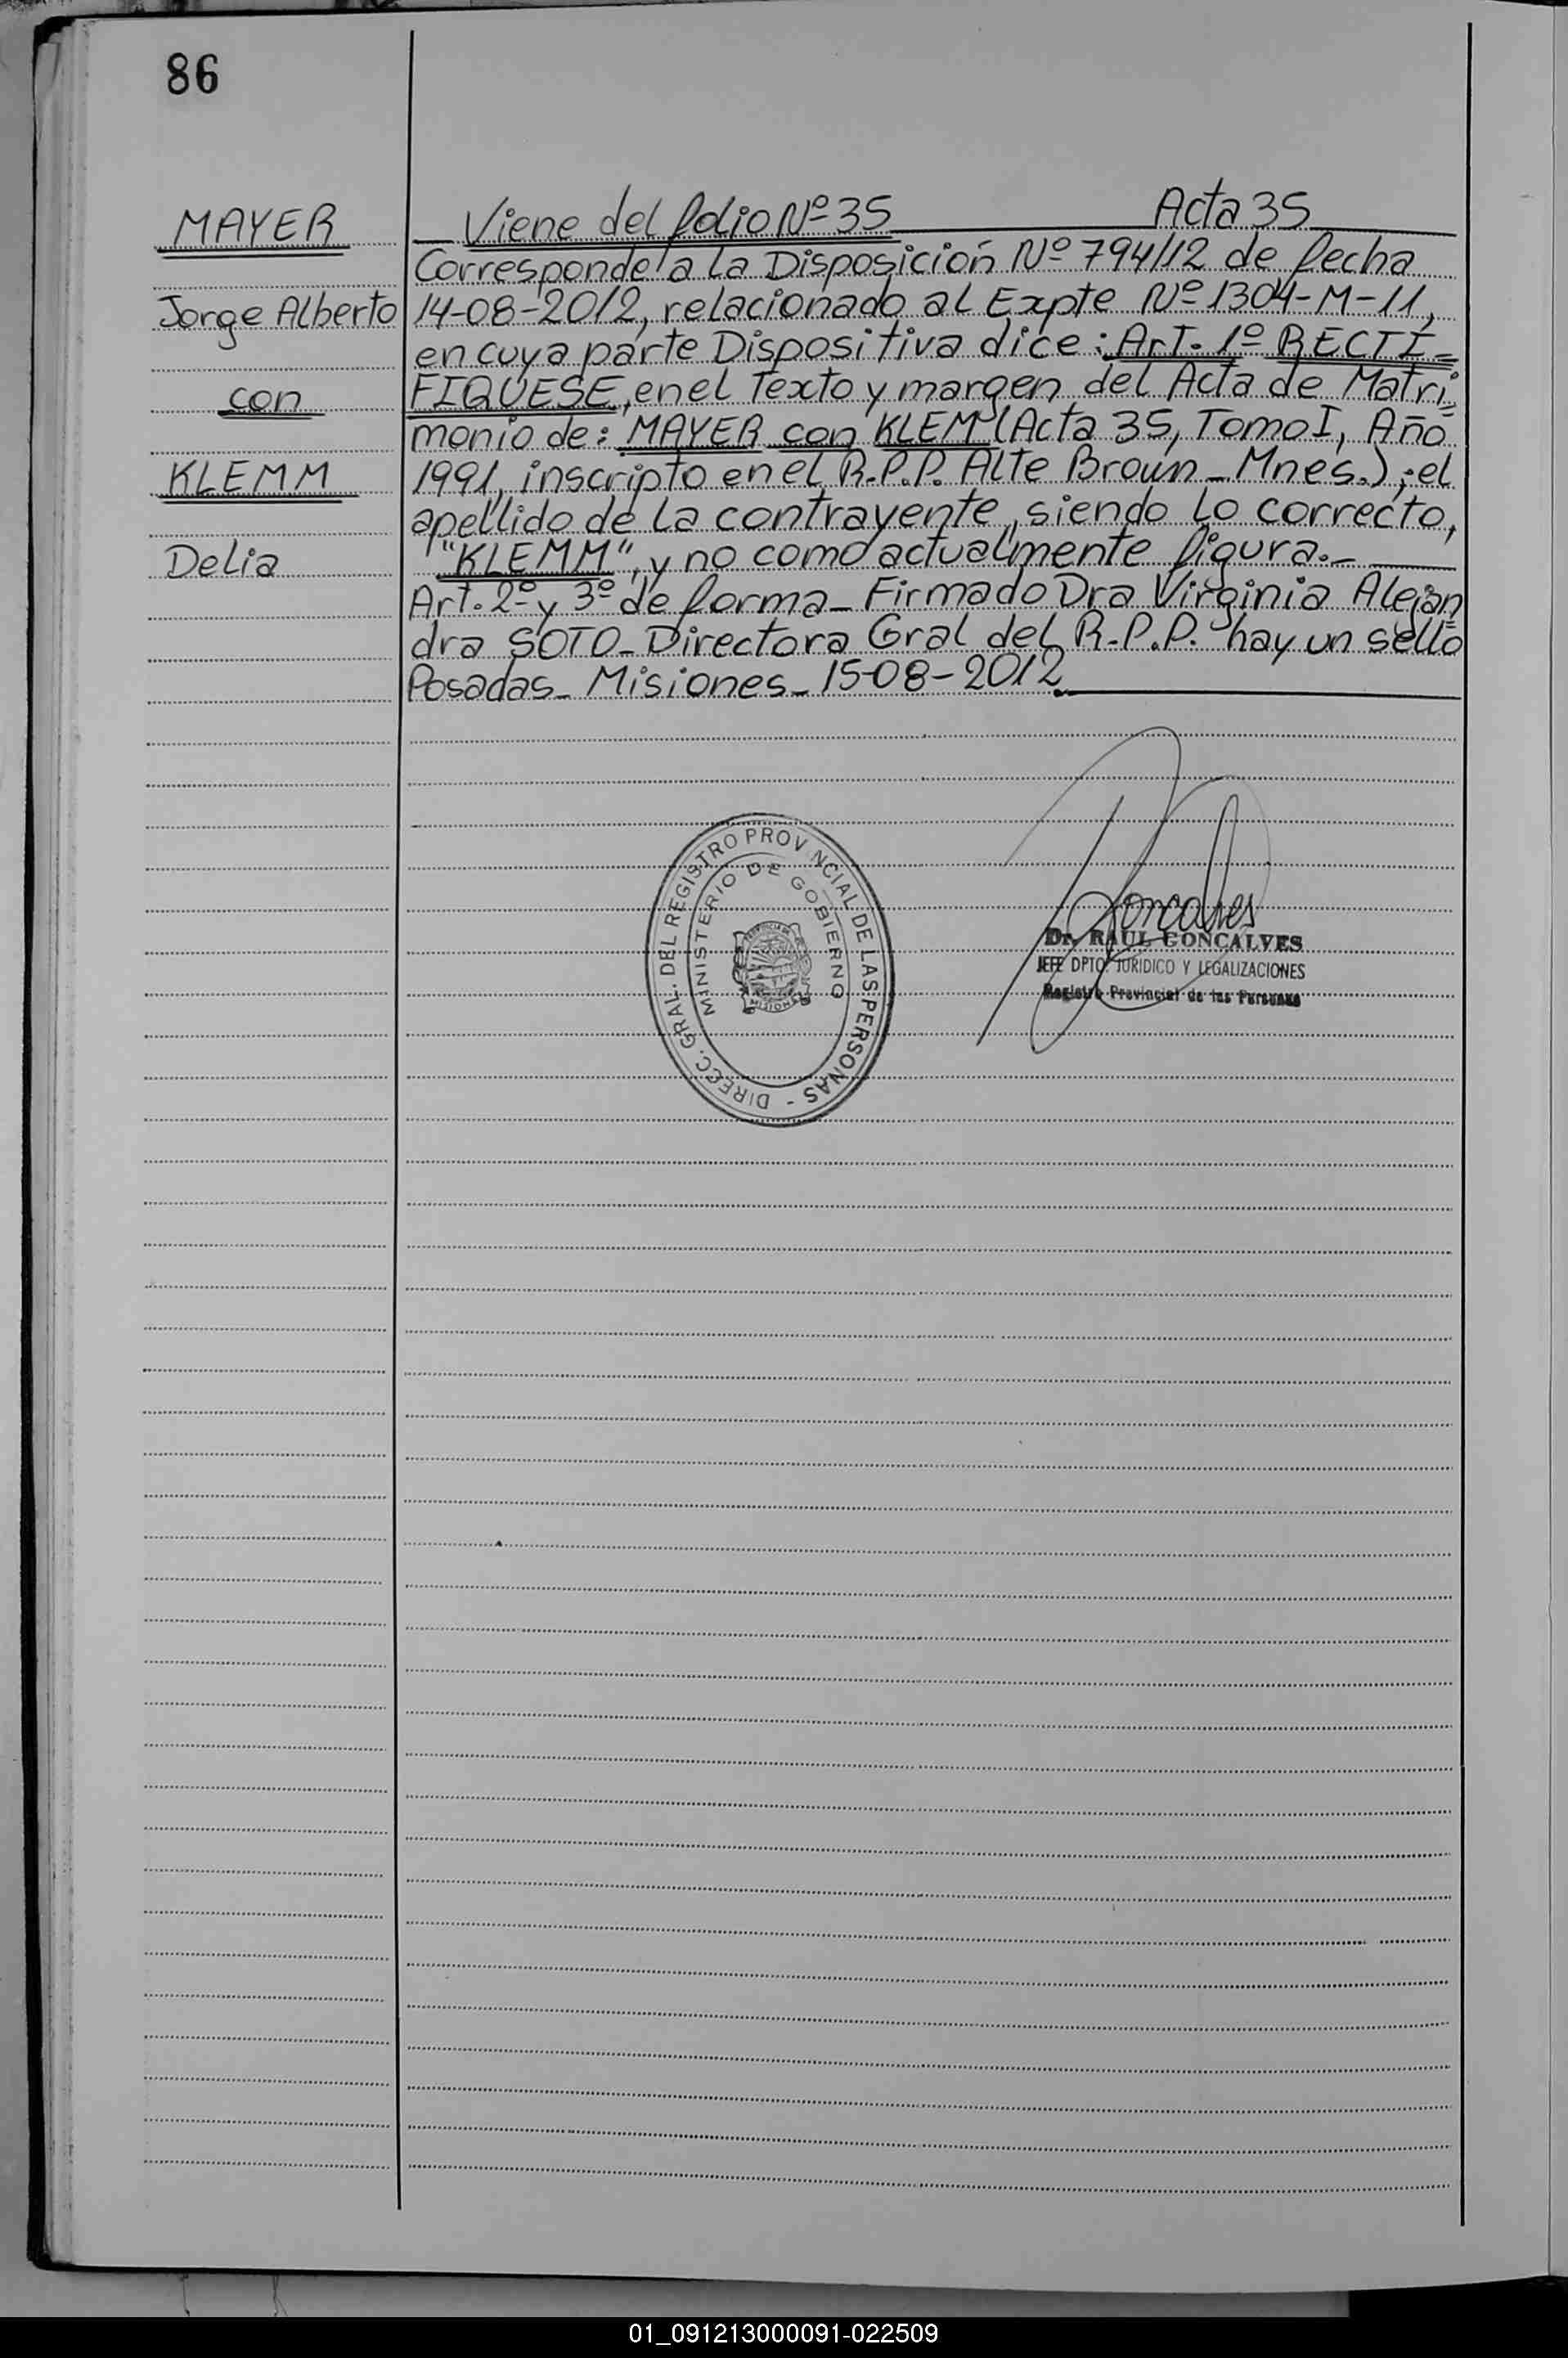 86
MAYER
Jorge Alberto
con
KLEMM
Delia
Viene del folio Nº 35 Acta 35
Corresponde a la Disposición Nº 794/12 de fecha
14-08-2012, relacionado al Expte Nº 1304-M-11,
en cuya parte Dispositiva dice: Art. 1º RECTI=
FIQUESE, en el Texto y margen del Acta de Matri=
monio de: MAYER con KLEM (Acta 35, Tomo I, Año
1991, inscripto en el R.P.P. Alte Brown - Mnes.); el
apellido de la contrayente, siendo lo correcto,
"KLEMM", y no como actualmente figura.-
Art. 2º y 3º de forma - Firmado Dra Virginia Alejan=
dra SOTO - Directora Gral del R.P.P. hay un sello
Posadas - Misiones - 15-08-2012.
DIRECC. GRAL. DEL REGISTRO PROVINCIAL DE LAS PERSONAS -
MINISTERIO DE GOBIERNO
PROVINCIA DE
MISIONES
Goncalves
Dr. RAUL GONCALVES
JEFE DPTO. JURIDICO Y LEGALIZACIONES
Registro Provincial de las Personas
01_091213000091-022509